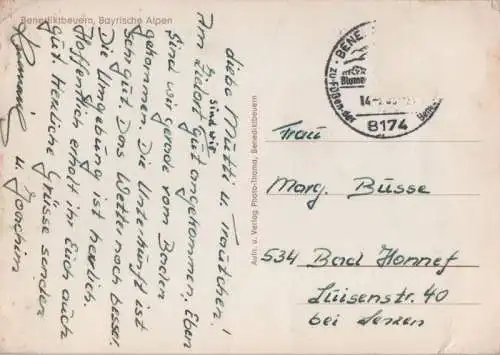 Benediktbeuern, Bayrische Alpen
Liebe Mutti u. Trautchen!
Am Zielort gut angekommen. Eben
sind wir
sind wir gerade vom Baden
gekommen. Die Unterkunft ist
sehr gut. Das Wetter noch besser.
Die Umgebung ist herlich.
Hoffentlich erhalt ihr Euch auch
gut. Herzliche Grüsse senden
u. Joachim
Aufn. u. Verlag Photo-Thoma, Benediktbeuern
BENE
ZU-FÜßEN-der
Blume
8174
Frau
Marg. Busse
534 Bad Honnef
Luisenstr. 40
bei Lenzen